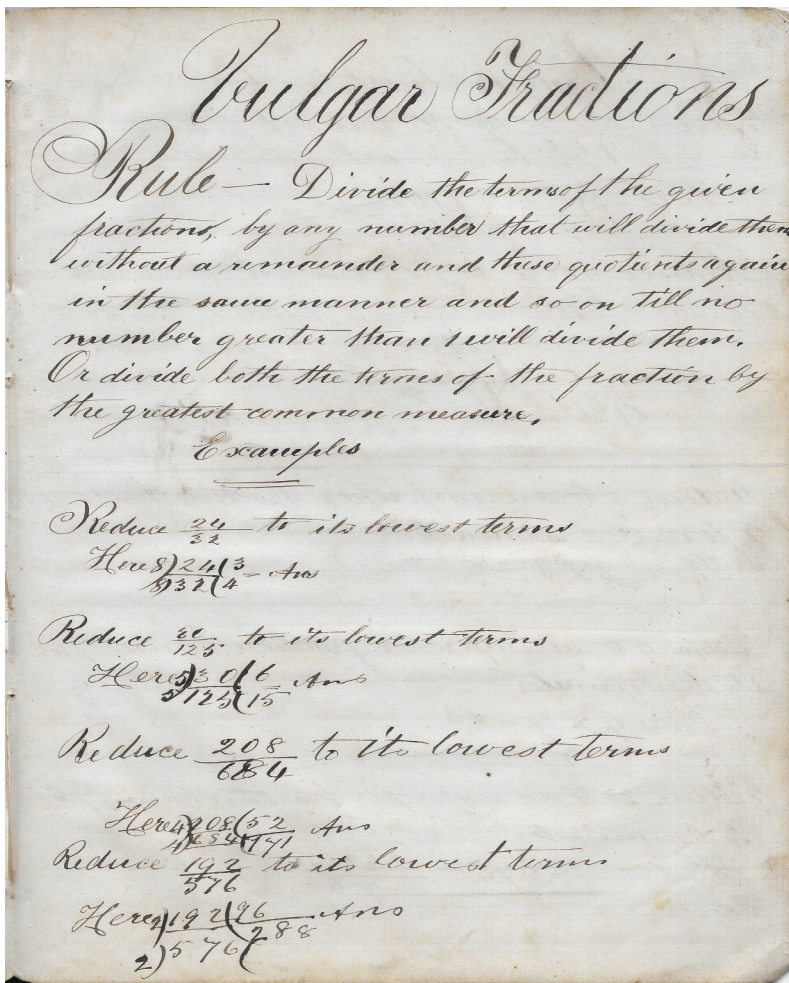 Vulgar Fractions
Rule — Divide the terms of the given
fractions, by any number that will divide them
without a remainder and these quotients again
in the same manner and so on till no
number greater than 1 will divide them.
Or divide both the terms of the fraction by
the greatest common measure.
Examples
Reduce 24/32 to its lowest terms
Here 8)24(3
8)32(4 = Ans
Reduce 30/125 to its lowest terms
Here 5)30(6 Ans
5)125(15
Reduce 208/684 to its lowest terms
Here 4)208(52 Ans
4)684(171
Reduce 192/576 to its lowest terms
Here 2)192(96 Ans
2)576(288